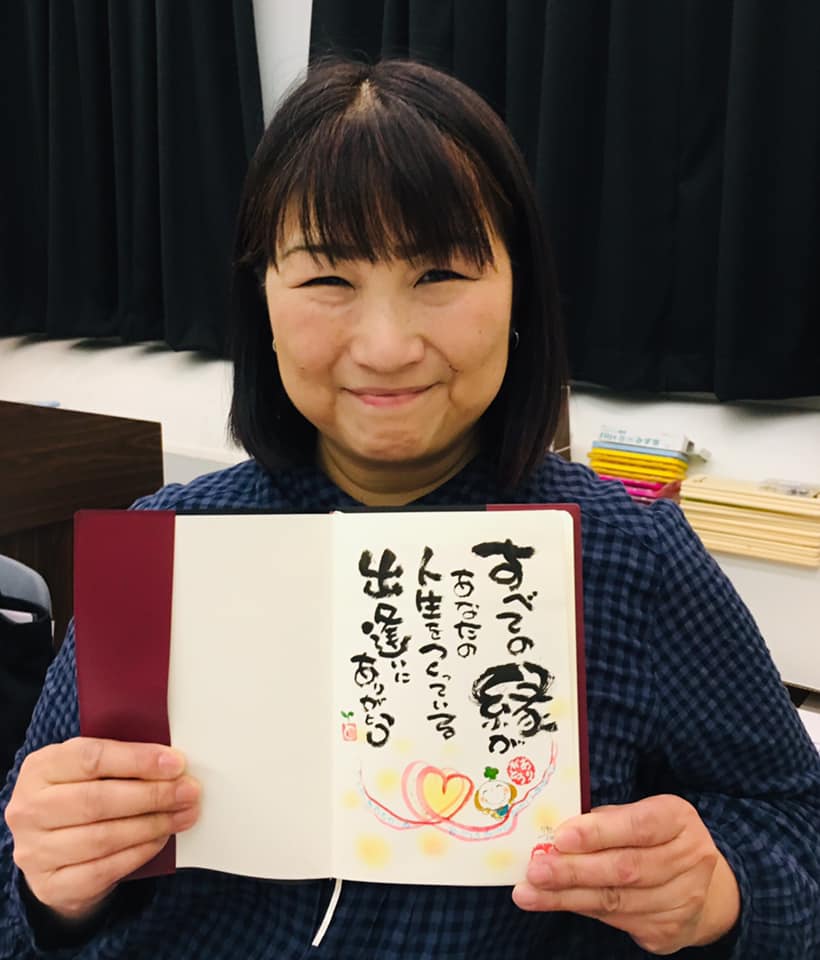 すべての縁が
あなたの
人生をつくっている
出逢いに
ありがとう